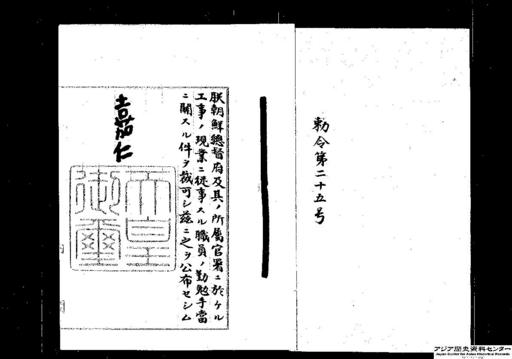 勅令第二十五号
朕朝鮮總督府及其ノ所屬官署ニ於ケル
工事ノ現業ニ從事スル職員ノ勤勉手當
ニ關スル件ヲ裁可シ茲ニ之ヲ公布セシム
嘉仁
天皇
御璽
アジア歴史資料センター
Japan Center for Asian Historical Records